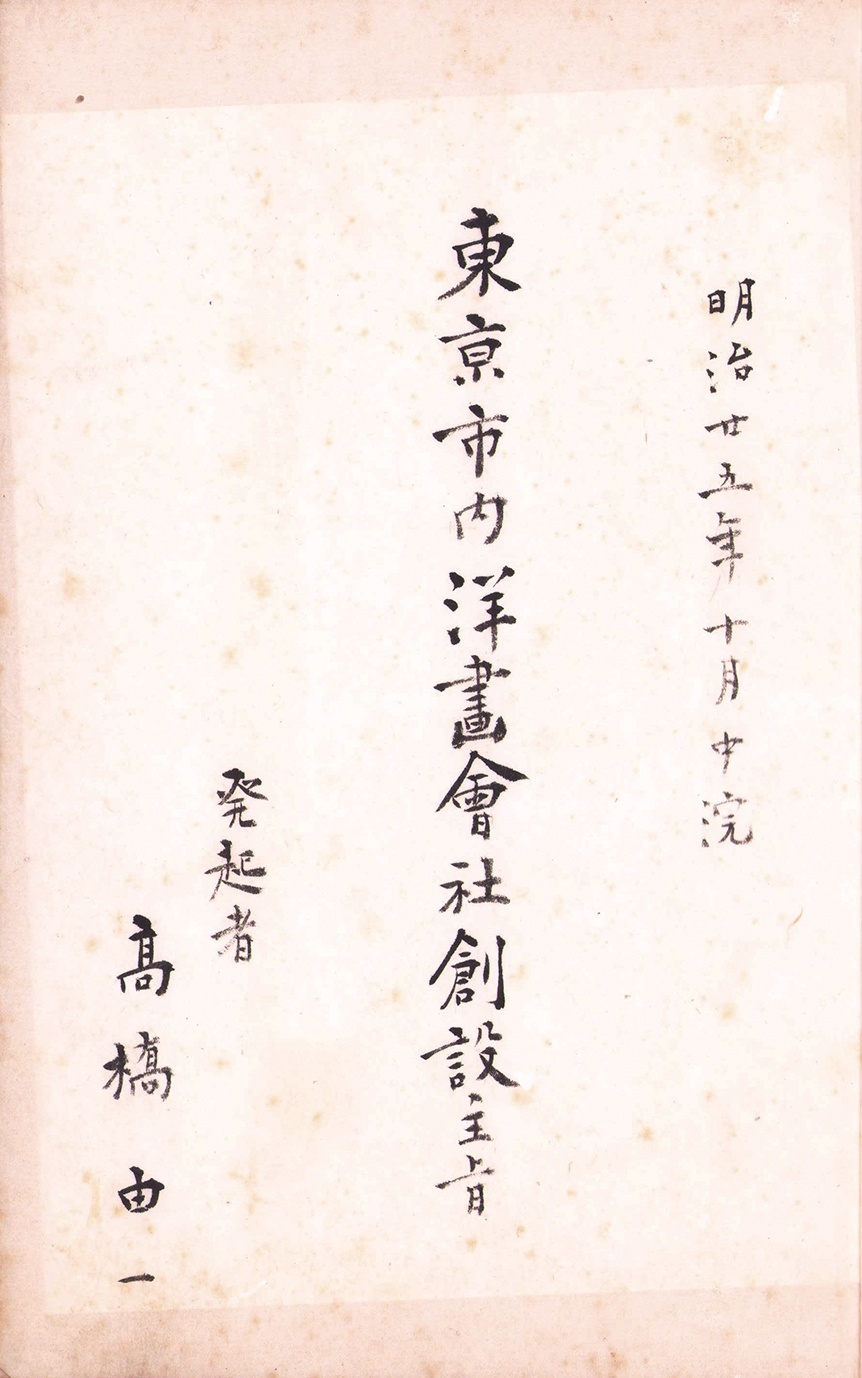 明治廿五年十月中浣
東京市内洋畫會社創設主旨
発起者
高橋由一